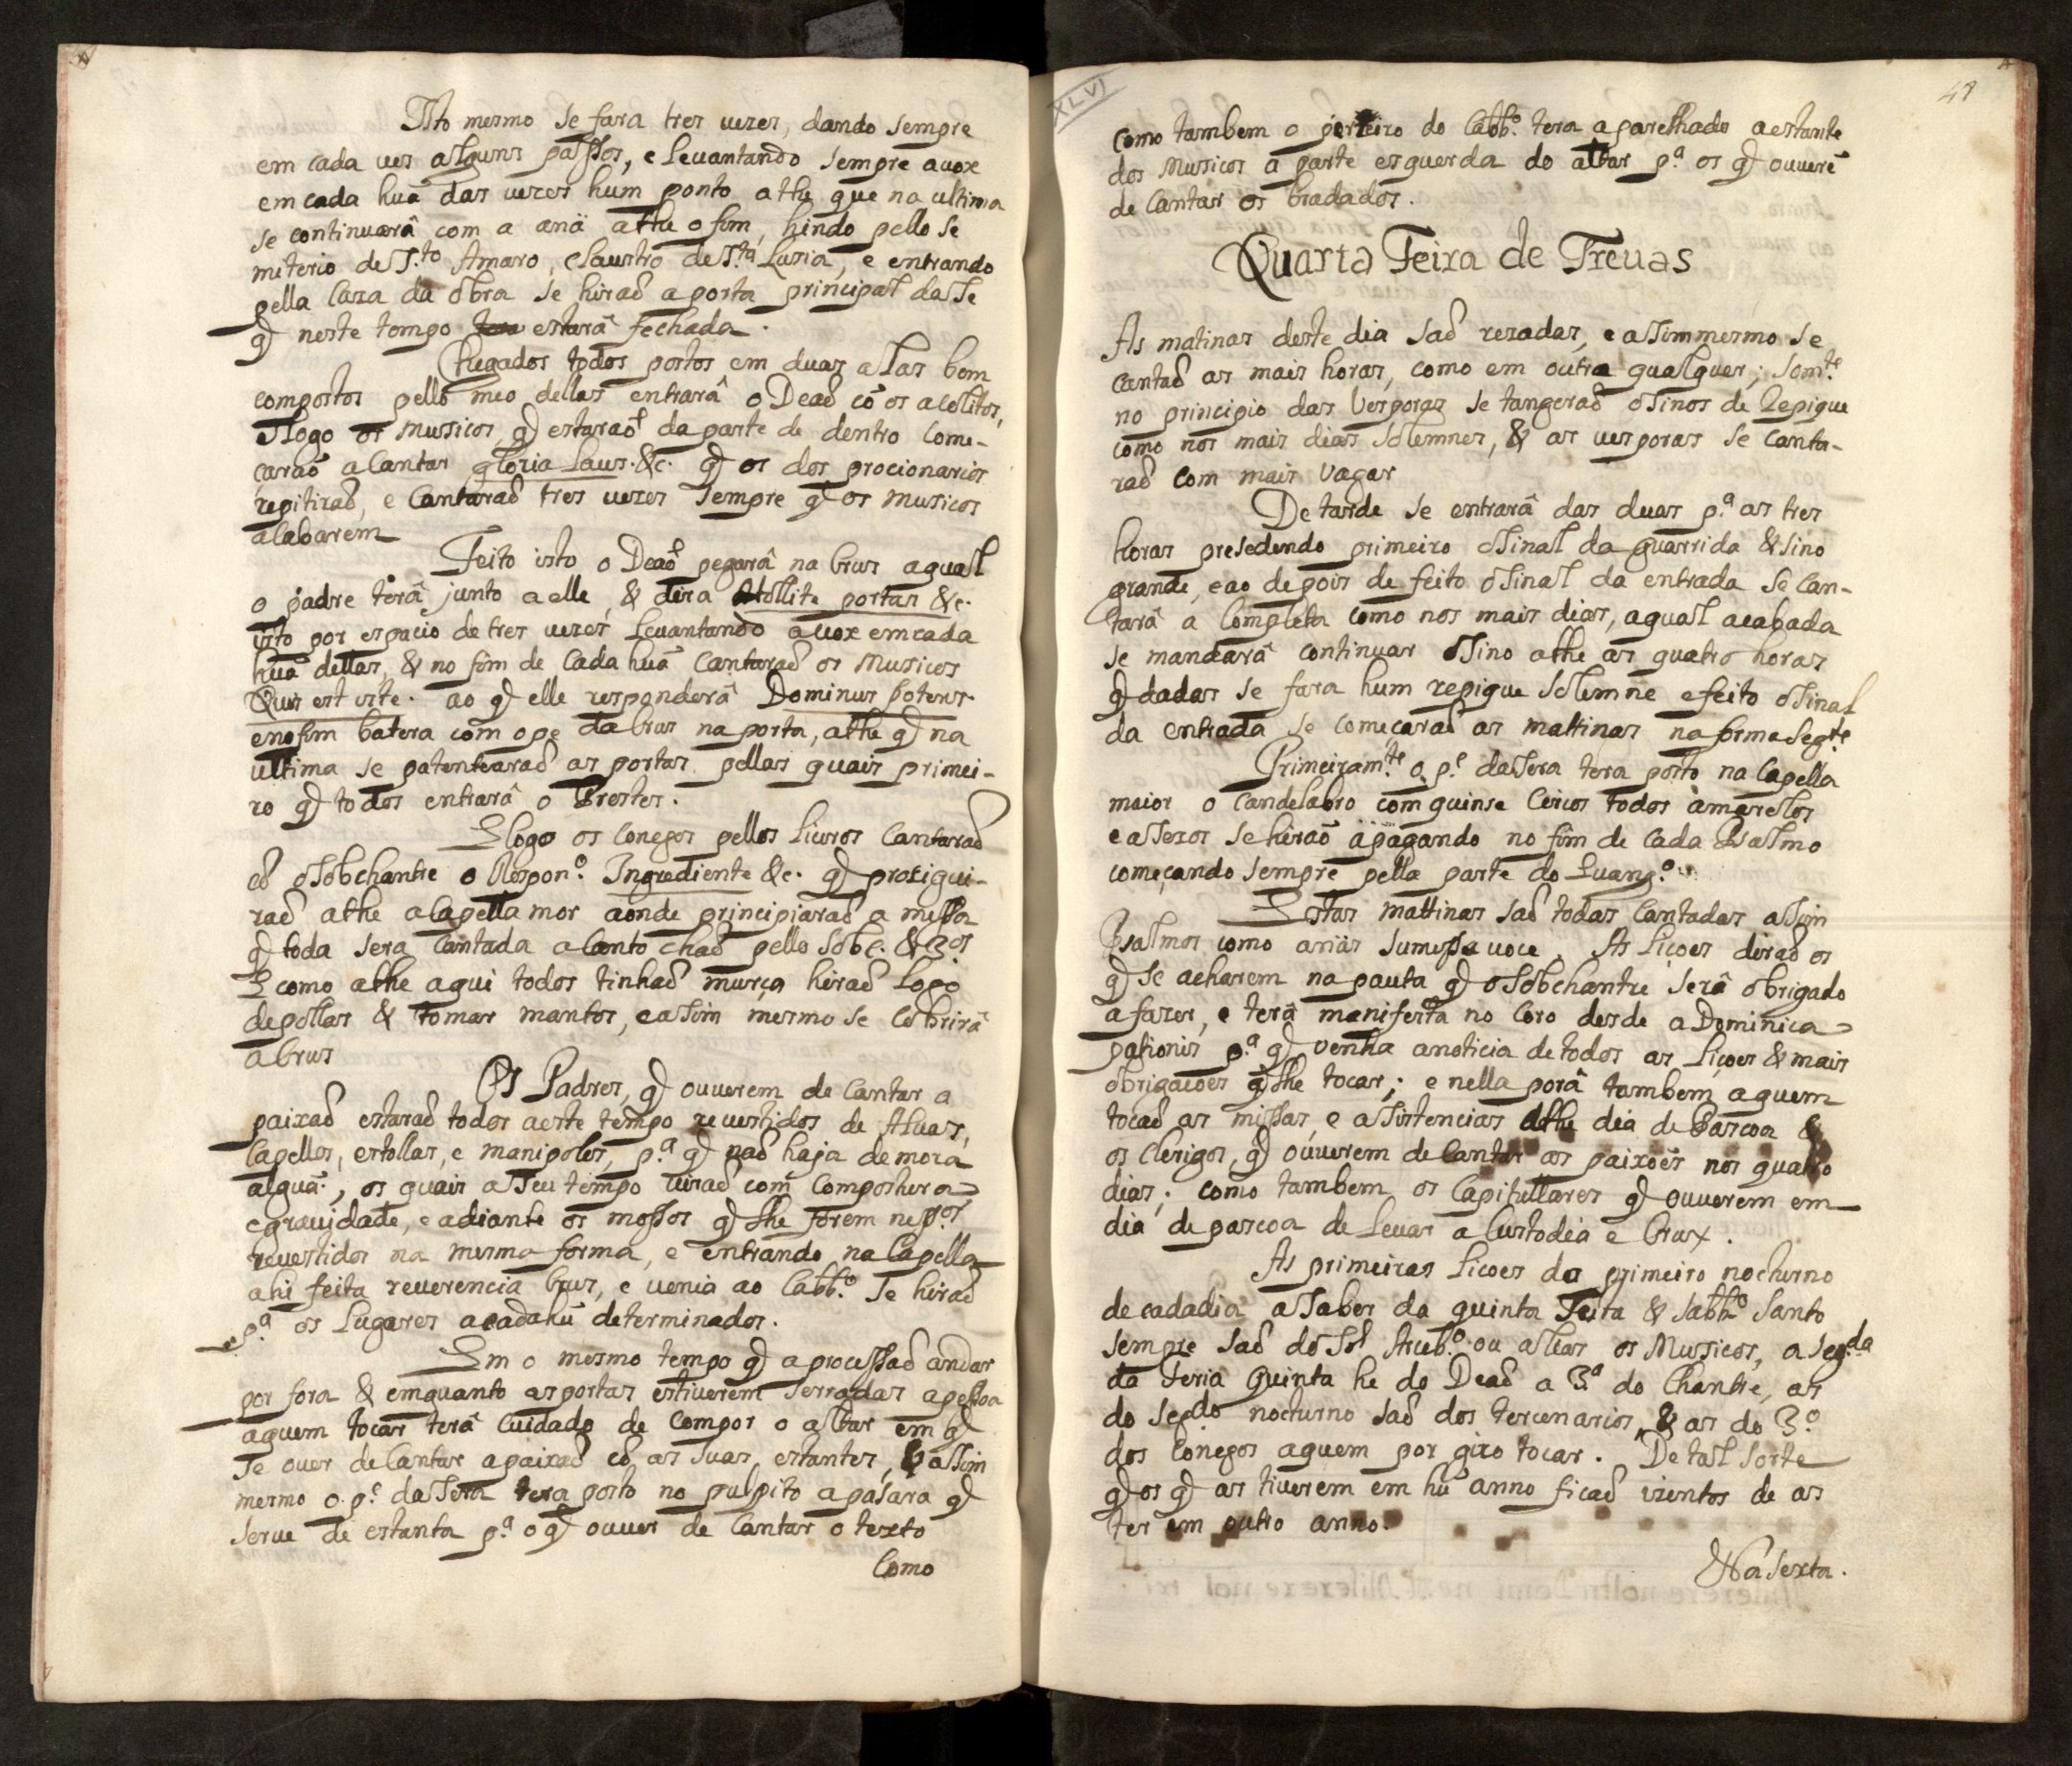 Isto mesmo se fara tres uezes, dando sempre
em cada ues alguns passos, e leuantando sempre auox
em cada huã das uezes hum ponto athe que na ultima
se continuarâ com a anã athe o fim, hindo pello se
miterio de S.to Amaro, claustro de S.ta Lusia, e entrando
pella Caza da obra se hiraõ a porta principal da Se
q̃ neste tempo estarâ fechada.
Chegados todos postos em duas alas bem
compostos pello meo dellas entrarâ o Deaõ cõ os acolitos,
E logo os musicos q̃ estaraõ da parte de dentro come-
caraõ a Cantar gloria laus. &c. q̃ os dos procionarios
repitiraõ, e Cantaraõ tres uezes sempre q̃ os musicos
alabarem
Feito isto o Deaõ pegarâ na brus aqual
o padre terâ junto a elle, & dira Atollite portas &c.
isto por espacio de tres uezes leuantando a uox emcada
huã dellas, & no fim de Cada huã Cantaraõ os Musicos
Quis est iste. ao q̃ elle responderâ Dominus potens.
enofim batera com ope da brus na porta, athe q̃ na
ultima se patentearaõ as portas pellas quais primei-
ro q̃ todos entrarâ o Prestes.
E logo os Conegos pellos liuros Cantaraõ
cõ o Sobchantre o Respon.o Ingrediente &c. q̃ prosigui-
raõ athe a Capella mor aonde principiaraõ a missa
q̃ toda sera Cantada a Canto chaõ pello Sobc. & 3.os
E como athe aqui todos tinhaõ murça hiraõ logo
depollas & tomar mantos, e assim mesmo se Cobrirâ
abrus
Os Padres, q̃ ouuerem de Cantar a
paixaõ estaraõ todos aeste tempo reuestidos de Aluas,
Capellos, estollas, e manipolos, p.a q̃ naõ haja demora
alguã, os quais a seu tempo uiraõ com Compostura
egrauidade, e adiante os mossos q̃ lhe forem ness.os
reuestidos na mesma forma, e entrando na Capella
ahi feita reuerencia brus, e uenia ao Cabb.o se hiraõ
p.a os Lugares acadahũ determinados.
Em o mesmo tempo q̃ a procissaõ andar
por fora & emquanto asportas estiuerem serradas apessoa
aquem tocar terâ Cuidado de Compor o altar em q̃
se ouer de Cantar apaixaõ cõ as suas estantes, & assim
mesmo o p.e da Sera tera posto no pulpito apasara q̃
serue de estanta p.a o q̃ ouuer de Cantar o texto
Como
XLVI
48
como tambem o porteiro do Cabb.o tera aparelhado aestante
dos Musicos a parte esquerda do altar p.a os q̃ ouuerẽ
de Cantar os bradados.
Quarta Feira de Treuas
As matinas deste dia saõ rezadas, e assimmesmo se
cantaõ as mais horas, como em outra qualquer; som.te
no principio das Vesporas se tangeraõ osinos de Repique
como nos mais dias solemnes, & as uesporas se Canta-
raõ com mais vagar
De tarde se entrarâ das duas p.a as tres
horas presedendo primeiro osinal da guarrida & sino
grande, eao depois de feito osinal da entrada se Can-
tarâ a Completa como nos mais dias, aqual acabada
se mandarâ continuar o Sino athe as quatro horas
q̃ dadas se fara hum repique solemne efeito osinal
da entrada se começaraõ as mattinas na forma seg.te
Primeiram.te o p.e da Sera tera posto na Capella
maior o Candelabro com quinse Cirios todos amarelos
e assezos se hiraõ apagando no fim de Cada Psalmo
começando sempre pella parte do Euang.o
Estas mattinas saõ todas Cantadas assim
Psalmos como anãs sumissa uoce. As liçoes diraõ os
q̃ se acharem na pauta q̃ o Sobchantre serâ obrigado
a fazer, e terâ manifesta no Coro desde a Dominica
pasionis p.a q̃ venha anoticia de todos as liçoes & mais
obrigacoes q̃ lhe tocar; e nella porâ tambem aquem
tocaõ as missas, e assistencias athe dia de Pascoa &
os Clerigos, q̃ ouuerem de Cantar as paixoẽs nos quatro
dias; como tambem os Capitullares q̃ ouuerem em
dia de pascoa de leuar a Custodia e Crux.
As primeiras licoes do primeiro nocturno
de cadadia a saber da quinta Feira & sabb.o santo
sempre saõ do Sr Arceb.o ou alias os Musicos, a seg.da
da Feria quinta he do Deaõ a 3.a do Chantre, as
do se.do nocturno saõ dos tercenarios, & as do 3.o
dos Conegos aquem por giro tocar. De tal sorte
q̃ os q̃ as tiuerem em hũ anno ficaõ izentos de as
ter em outro anno.
Na sexta.